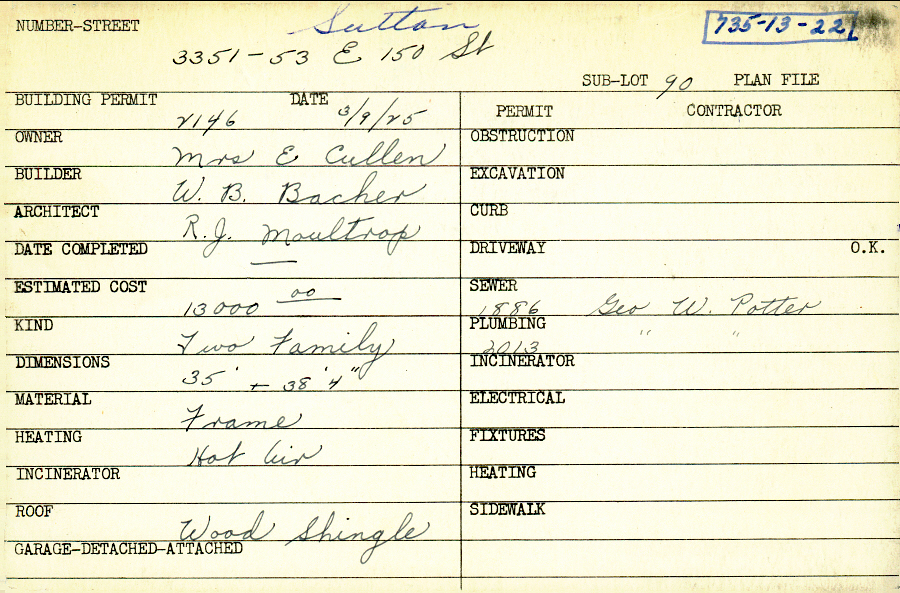 NUMBER-STREET Sutton 735-13-22
3351-53 E 150 St
SUB-LOT 90 PLAN FILE
BUILDING PERMIT 2146 DATE 3/9/25
PERMIT CONTRACTOR
OWNER Mrs E Cullen
OBSTRUCTION
BUILDER W. B. Bacher
EXCAVATION
ARCHITECT R. J. Moultrop
CURB
DATE COMPLETED —
DRIVEWAY O.K.
ESTIMATED COST 13000 00
SEWER 1886 Geo W. Potter
KIND Two Family
PLUMBING 2013 " "
DIMENSIONS 35' + 38'4"
INCINERATOR
MATERIAL Frame
ELECTRICAL
HEATING Hot Air
FIXTURES
INCINERATOR
HEATING
ROOF Wood Shingle
SIDEWALK
GARAGE-DETACHED-ATTACHED